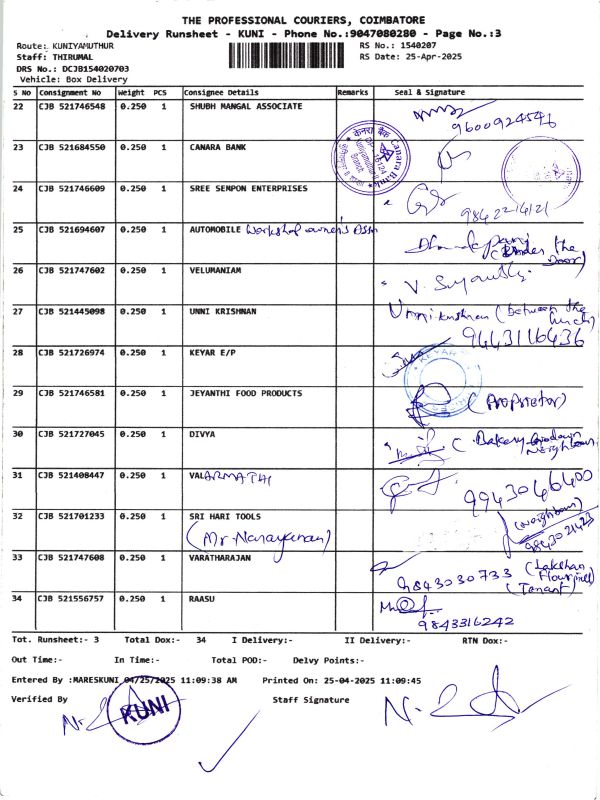 THE PROFESSIONAL COURIERS, COIMBATORE
Delivery Runsheet - KUNI - Phone No.:9047080280 - Page No.:3
Route: KUNIYAMUTHUR RS No.: 1540207
Staff: THIRUMAL RS Date: 25-Apr-2025
DRS No.: DCJB154020703
Vehicle: Box Delivery
S No Consignment No Weight PCS Consignee Details Remarks Seal & Signature
22 CJB 521746548 0.250 1 SHUBH MANGAL ASSOCIATE
9600924546
23 CJB 521684550 0.250 1 CANARA BANK
केनरा बैंक Canara Bank
24 CJB 521746609 0.250 1 SREE SENPON ENTERPRISES
25 CJB 521694607 0.250 1 AUTOMOBILE Workshop owner's Assn
(Under the Door)
26 CJB 521747602 0.250 1 VELUMANIAM
27 CJB 521445098 0.250 1 UNNI KRISHNAN Unni krishnan (between the
9443116436
28 CJB 521726974 0.250 1 KEYAR E/P KEYAR
29 CJB 521746581 1 0.250 JEYANTHI FOOD PRODUCTS (Proprietor)
30 CJB 521727045 0.250 1 DIVYA (Bakery Godown Neighbour
31 CJB 521408447 0.250 1 VALARMATHI 9943046400
32 CJB 521701233 0.250 1 SRI HARI TOOLS (Neighbour)
(Mr Narayanan) 9843021423
33 CJB 521747608 0.250 1 VARATHARAJAN
9843030733 (Tenant)
34 CJB 521556757 0.250 1 RAASU
9843316242
Tot. Runsheet:- 3 Total Dox:- 34 I Delivery:- II Delivery:- RTN Dox:-
Out Time:- In Time:- Total POD:- Delvy Points:-
Entered By :MARESKUNI 04/25/2025 11:09:38 AM Printed On: 25-04-2025 11:09:45
Verified By Staff Signature
KUNI